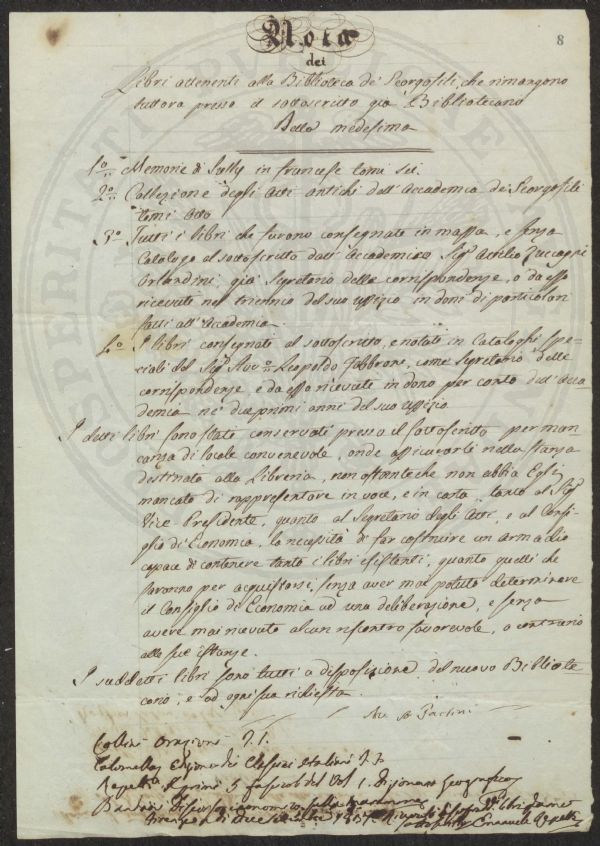 8
Nota
dei
Libri attenenti alla Biblioteca de' Georgofili, che rimangono
tuttora presso il sottoscritto già Bibliotecario
Della medesima
1.º Memorie di Sully in francese tomi sei.
2.º Collezione degli Atti antichi dell'Accademia de' Georgofili
tomi otto
3.º Tutti i libri che furono consegnati in massa, e senza
Catalogo al sottoscritto dall'Accademico Sigr Attilio Zuccagni
Orlandini, già Segretario delle corrispondenze, o da esso
ricevuti nel triennio del suo uffizio in doni di particolari
fatti all'Accademia.
4.º I libri consegnati al sottoscritto, e notati in Cataloghi spe-
ciali dal Sigr Avv.o Leopoldo Fabbroni, come Segretario delle
corrispondenze e da esso ricevuti in dono per conto dell'Acca-
demia ne' due primi anni del suo uffizio.
I detti libri sono stati conservati presso il sottoscritto per man-
canza di locale convenevole, onde assicurarli nella stanza
destinata alla Libreria, non ostante che non abbia Egli
mancato di rappresentare in voce, e in carta tanto al Sigr
Vice-Presidente, quanto al Segretario degli Atti, e al Consi-
glio di Economia, la necessità di far costruire un armadio
capace di contenere tanto i libri esistenti, quanto quelli che
saranno per acquistarsi, senza aver mai potuto determinare
il Consiglio di Economia ad una deliberazione, e senza
avere mai ricevuto alcun riscontro favorevole, o contrario
alle sue istanze.
I suddetti libri sono tutti a disposizione del nuovo Bibliote-
cario, e ad ogni sua richiesta.
Collini Orazioni T. I.
Columella Edizione dei Classici Italiani T.
Repetti 5 fascoli del Vol. 1. Dizionario Geografico
Bandini Discorso economico sulla Maremma
Firenze Emanuele Repetti